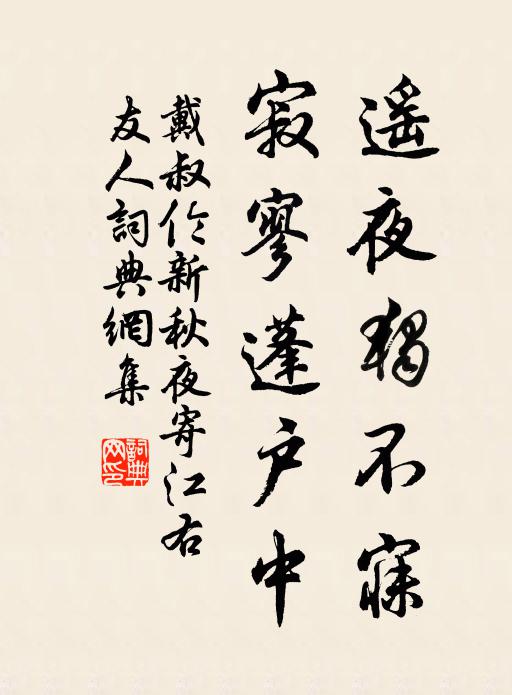 遥夜獨不寐
寂寥蓬戶中
戴叔伦新秋夜寄江右
友人詞典網集
詞典
网印